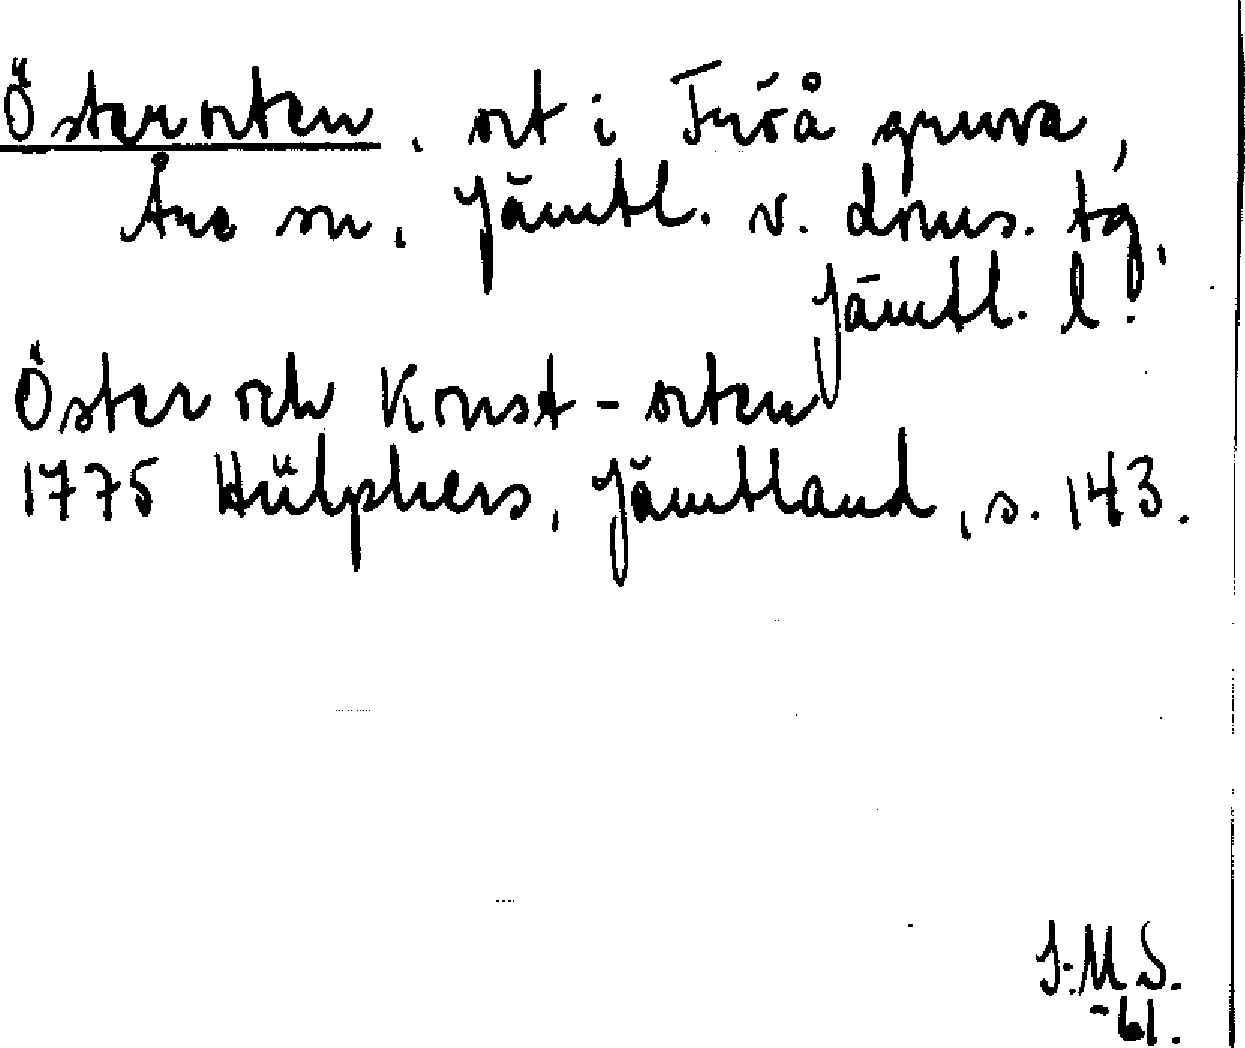 Österorten, ort i Fröå gruva,
Åre sn, Jämtl. v. doms. tg,
Jämtl. l.
Öster och Konst-orten
1775 Hülphers, Jämtland, s. 143.
I.M.S.
-61.